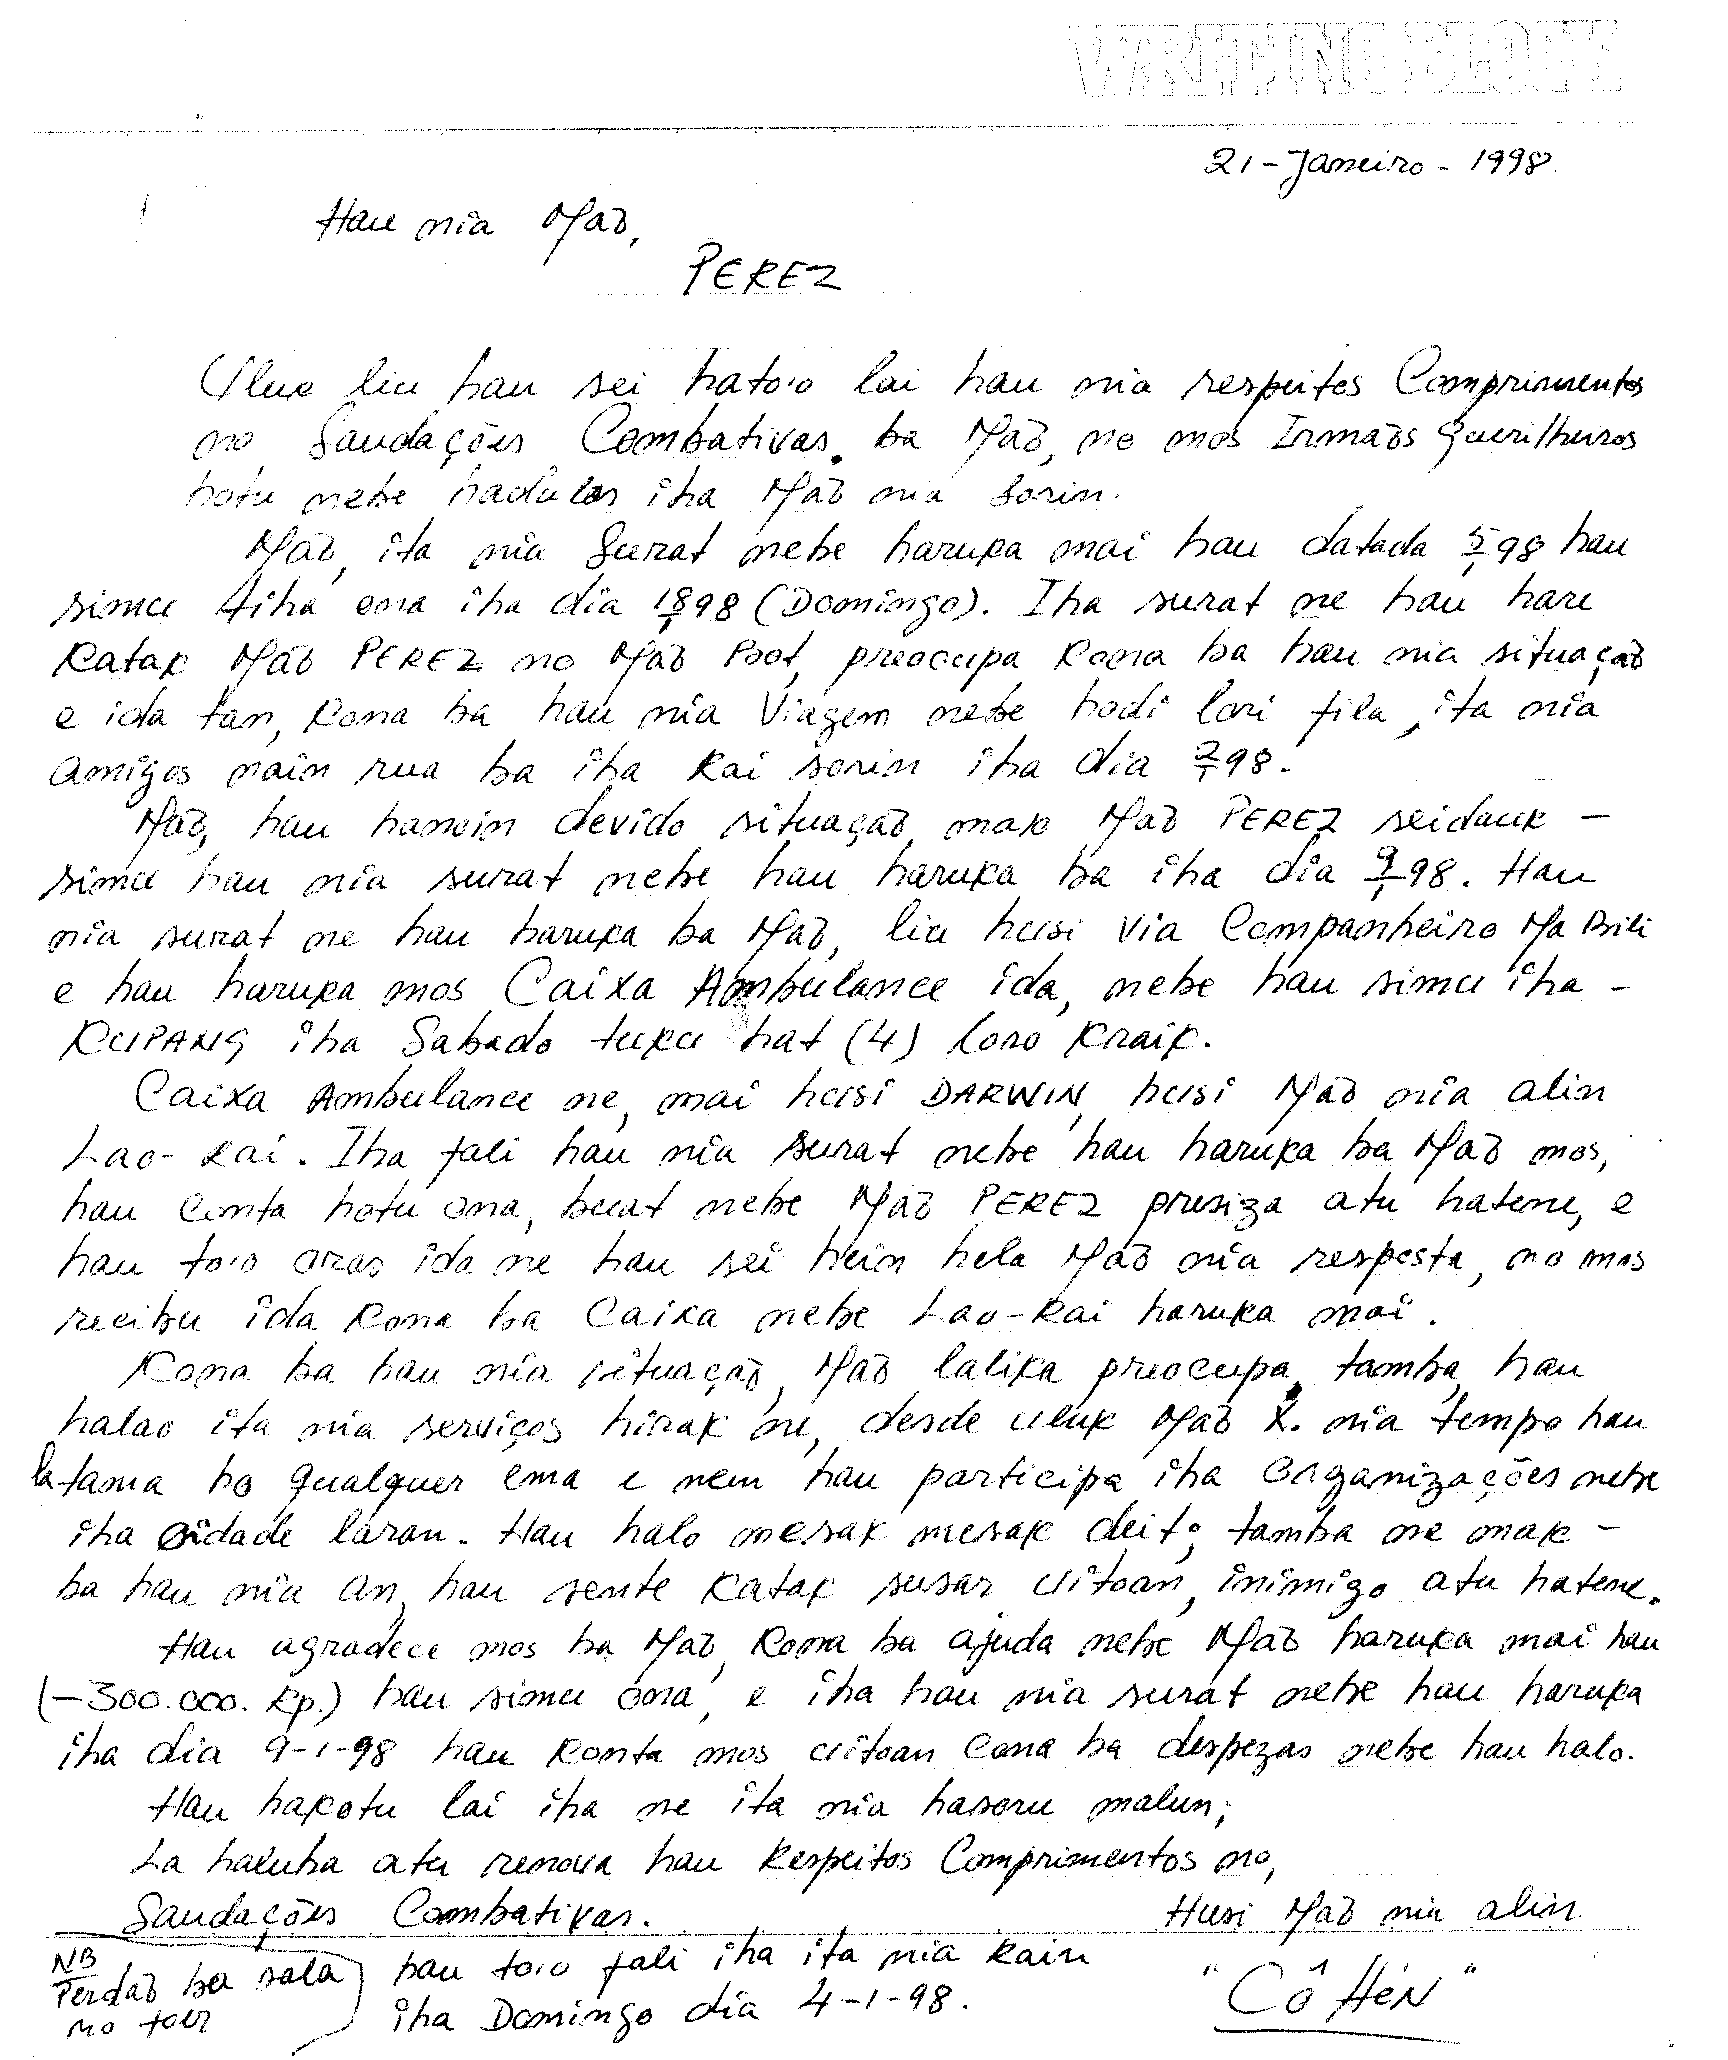 WRITING BLOCK
21-Janeiro-1998.
Hau nia Maõ,
PEREZ
Uluk liu hau sei hato'o lai hau nia respeitos Comprimentos
no, Saudações Combativas. ba Maõ, no mos Irmaõs guerilheiros
hotu nebe hadulas iha Maõ nia Sorin.
Maõ, ita nia Surat nebe haruka mai hau datada 5/1 98 hau
simu tiha ona iha dia 18/1 98 (Domingo). Iha surat ne hau hare
Katak Maõ PEREZ no Maõ Boot, preocupa Kona ba hau nia situação
e ida tan, Kona ba hau nia Viagem nebe hodi lori fila, ita nia
Amigos nain rua ba iha Kai sorin iha dia 2/1 98.
Maõ, hau hanoin devido situação mak Maõ PEREZ seidauk -
simu hau nia surat nebe hau haruka ba iha dia 9/1 98. Hau
nia surat ne hau haruka ba Maõ, liu husi via Companheiro Ma Bili
e hau haruka mos Caixa Ambulance ida, nebe hau simu iha -
KUPANG iha Sabado tuku hat (4) loro Kraik.
Caixa Ambulance ne, mai husi DARWIN, husi Maõ nia alin
Lao-Kai. Iha fali hau nia surat nebe hau haruka ba Maõ mos,
hau conta hotu ona, buat nebe Maõ PEREZ presiza atu hatene, e
hau to'o oras ida ne hau sei hein hela Maõ nia resposta, no mos
recibu ida Kona ba Caixa nebe Lao-Kai haruka mai.
Kona ba hau nia situação, Maõ lalika preocupa, tamba, hau
halao ita nia serviços hirak ne, desde uluk Maõ X. nia tempo hau
la tama ho qualquer ema e nem hau participa iha Organizações nebe
iha cidade laran. Hau halo mesak mesak deit; tamba ne mak -
ba hau nia an, hau sente Katak susar uitoan, inimigo atu hatene.
Hau agradece mos ba Maõ, Kona ba ajuda nebe Maõ haruka mai hau
(-300.000. Rp.) hau simu ona, e iha hau nia surat nebe hau haruka
iha dia 9-1-98 hau Konta mos uitoan Cona ba despezas nebe hau halo.
Hau hakotu lai iha ne ita nia hasoru malun;
La haluha atu renova hau Respeitos Comprimentos no,
Saudações Combativas.
Husi Maõ nia alin
"CôHéN"
NB
Perdaõ ba sala
no foer
hau to'o fali iha ita nia Rain
iha Domingo dia 4-1-98.